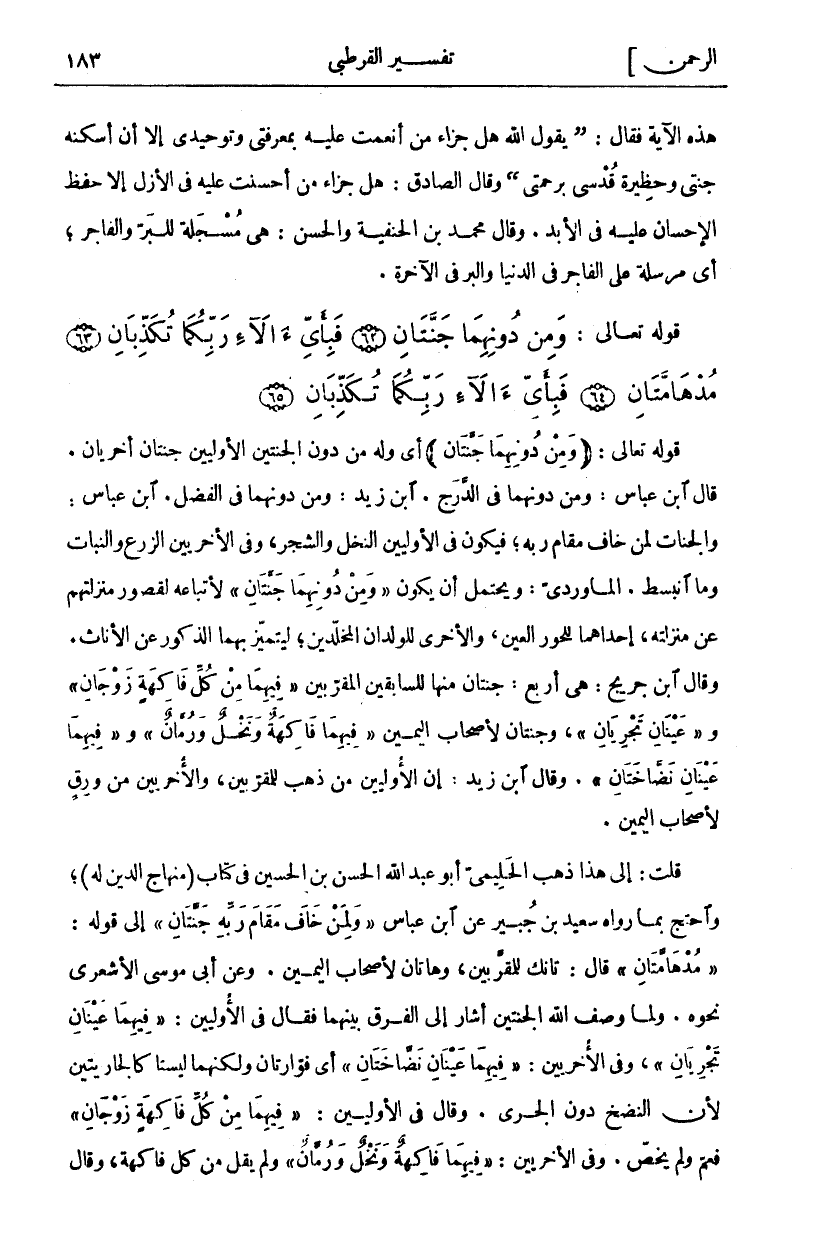 الرحمن ] تفسير القرطبى ١٨٣
هذه الآية فقال : ” يقول الله هل جزاء من أنعمت عليه بمعرفتى وتوحيدى إلا أن أسكنه
جنتى وحظيرة قُدْسى برحمتى “ وقال الصادق : هل جزاء من أحسنت عليه فى الأزل إلا حفظ
الإحسان عليه فى الأبد . وقال محمد بن الحنفية والحسن : هى مُسْجَلة للبَرّ والفاجر ؛
أى مرسلة على الفاجر فى الدنيا والبر فى الآخرة .
قوله تعالى : وَمِن دُونِهِمَا جَنَّتَانِ ﴿٦٢﴾ فَبِأَيِّ ءَالَآءِ رَبِّكُمَا تُكَذِّبَانِ ﴿٦٣﴾
مُدْهَامَّتَانِ ﴿٦٤﴾ فَبِأَيِّ ءَالَآءِ رَبِّكُمَا تُكَذِّبَانِ ﴿٦٥﴾
قوله تعالى : ﴿ وَمِنْ دُونِهِمَا جَنَّتَانِ ﴾ أى وله من دون الجنتين الأوليين جنتان أخريان .
قال ٱبن عباس : ومن دونهما فى الدَّرَج . ٱبن زيد : ومن دونهما فى الفضل . ٱبن عباس :
والجنات لمن خاف مقام ربه ؛ فيكون فى الأوليين النخل والشجر، وفى الأخريين الزرع والنبات
وما ٱنبسط . الماوردىّ : ويحتمل أن يكون « وَمِنْ دُونِهِمَا جَنَّتَانِ » لأتباعه لقصور منزلتهم
عن منزلته، إحداهما للحور العين، والأخرى للولدان المخلّدين ؛ ليتميّز بهما الذكور عن الأناث .
وقال ٱبن جريج : هى أربع : جنتان منها للسابقين المقرّبين « فِيهِمَا مِنْ كُلِّ فَاكِهَةٍ زَوْجَانِ »
و « عَيْنَانِ تَجْرِيَانِ »، وجنتان لأصحاب اليمين « فِيهِمَا فَاكِهَةٌ وَنَخْلٌ وَرُمَّانٌ » و « فِيهِمَا
عَيْنَانِ نَضَّاخَتَانِ » . وقال ٱبن زيد : إن الأُوليين من ذهب للمقرّبين، والأُخريين من ورِقٍ
لأصحاب اليمين .
قلت : إلى هذا ذهب الحَلِيمىّ أبو عبد الله الحسن بن الحسين فى كتاب (منهاج الدين له) ؛
وٱحتج بما رواه سعيد بن جُبير عن ٱبن عباس « وَلِمَنْ خَافَ مَقَامَ رَبِّهِ جَنَّتَانِ » إلى قوله :
« مُدْهَامَّتَانِ » قال : تانك للمقرَّبين، وهاتان لأصحاب اليمين . وعن أبى موسى الأشعرى
نحوه . ولما وصف الله الجنتين أشار إلى الفرق بينهما فقال فى الأُوليين : « فِيهِمَا عَيْنَانِ
تَجْرِيَانِ »، وفى الأُخريين : « فِيهِمَا عَيْنَانِ نَضَّاخَتَانِ » أى فوّارتان ولكنهما ليستا كالجاريتين
لأن النضخ دون الجرى . وقال فى الأوليين : « فِيهِمَا مِنْ كُلِّ فَاكِهَةٍ زَوْجَانِ »
فعمّ ولم يخصّ . وفى الأخريين : « فِيهِمَا فَاكِهَةٌ وَنَخْلٌ وَرُمَّانٌ » ولم يقل من كل فاكهة، وقال